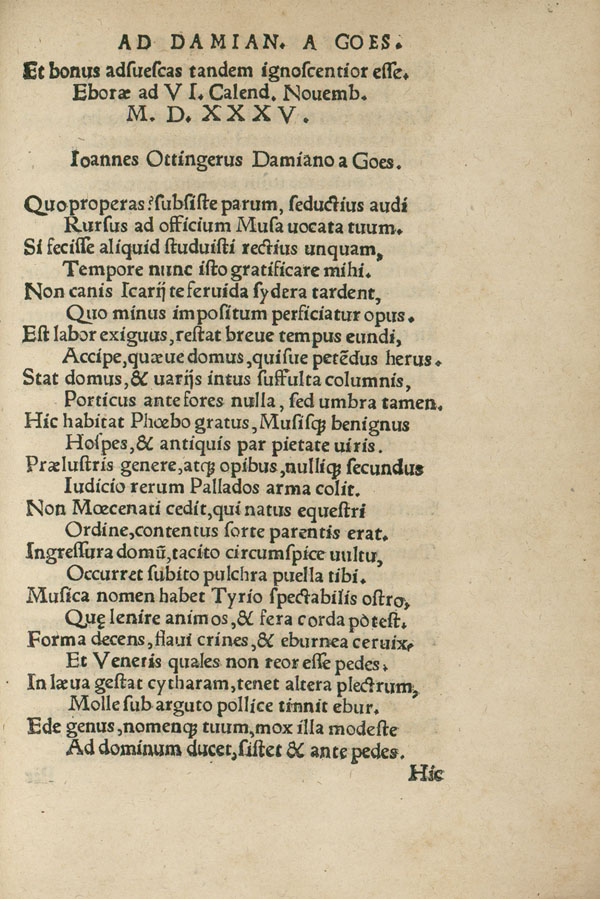 AD DAMIAN. A GOES.
Et bonus adſueſcas tandem ignoſcentior eſſe.
Eboræ ad VI. Calend. Nouemb.
M. D. XXXV.
Ioannes Ottingerus Damiano a Goes.
Quo properas? ſubſiſte parum, ſeductius audi
Rurſus ad officium Muſa uocata tuum.
Si feciſſe aliquid ſtuduiſti rectius unquam,
Tempore nunc iſto gratificare mihi.
Non canis Icarij te feruida ſydera tardent,
Quo minus impoſitum perficiatur opus.
Eſt labor exiguus, reſtat breue tempus eundi,
Accipe, quæue domus, quiſue petēdus herus.
Stat domus, & uarijs intus ſuffulta columnis,
Porticus ante fores nulla, ſed umbra tamen.
Hic habitat Phœbo gratus, Muſisq; benignus
Hoſpes, & antiquis par pietate uiris.
Præluſtris genere, atq; opibus, nulliq; ſecundus
Iudicio rerum Pallados arma colit.
Non Mœcenati cedit, qui natus equeſtri
Ordine, contentus ſorte parentis erat.
Ingreſſura domū, tacito circumſpice uultu,
Occurret ſubito pulchra puella tibi.
Muſica nomen habet Tyrio ſpectabilis oſtro,
Quę lenire animos, & fera corda poteſt.
Forma decens, flaui crines, & eburnea ceruix,
Et Veneris quales non reor eſſe pedes.
In læua geſtat cytharam, tenet altera plectrum,
Molle ſub arguto pollice tinnit ebur.
Ede genus, nomenq; tuum, mox illa modeſte
Ad dominum ducet, ſiſtet & ante pedes.
Hic